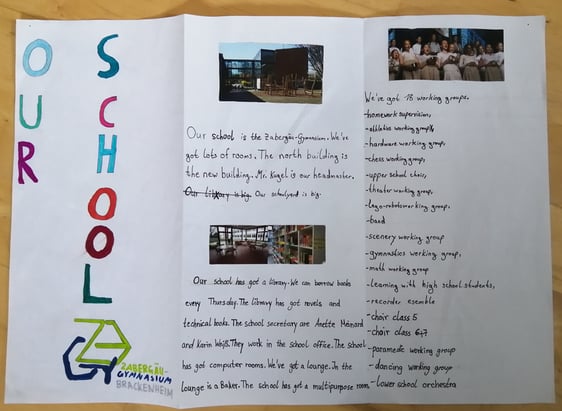 OUR
SCHOOL
ZGY
ZABERGÄU-
GYMNASIUM
BRACKENHEIM
Our school is the Zabergäu-Gymnasium. We've
got lots of rooms. The north building is
the new building. Mr. Kugel is our headmaster.
Our library is big. Our schoolyard is big.
Our school has got a library. We can borrow books
every Thursday. The library has got novels and
technical books. The school secretary are Anette
and Karin Weiß. They work in the school office. The school
has got computer rooms. We've got a lounge. In the
lounge is a Baker. The school has got a multipurpose room.
We've got 18 working groups.
-homework supervision,
-athletics working group,
-hardware working group,
-chess working group,
-upper school choir,
-theater working group,
-lego-robots working group,
-band
-scenery working group
-gymnastics working group,
-math working group
-learning with high school students,
-recorder esemble
-choir class 5
-choir class 6+7
-paramedic working group
-dancing working group
-lower school orchestra